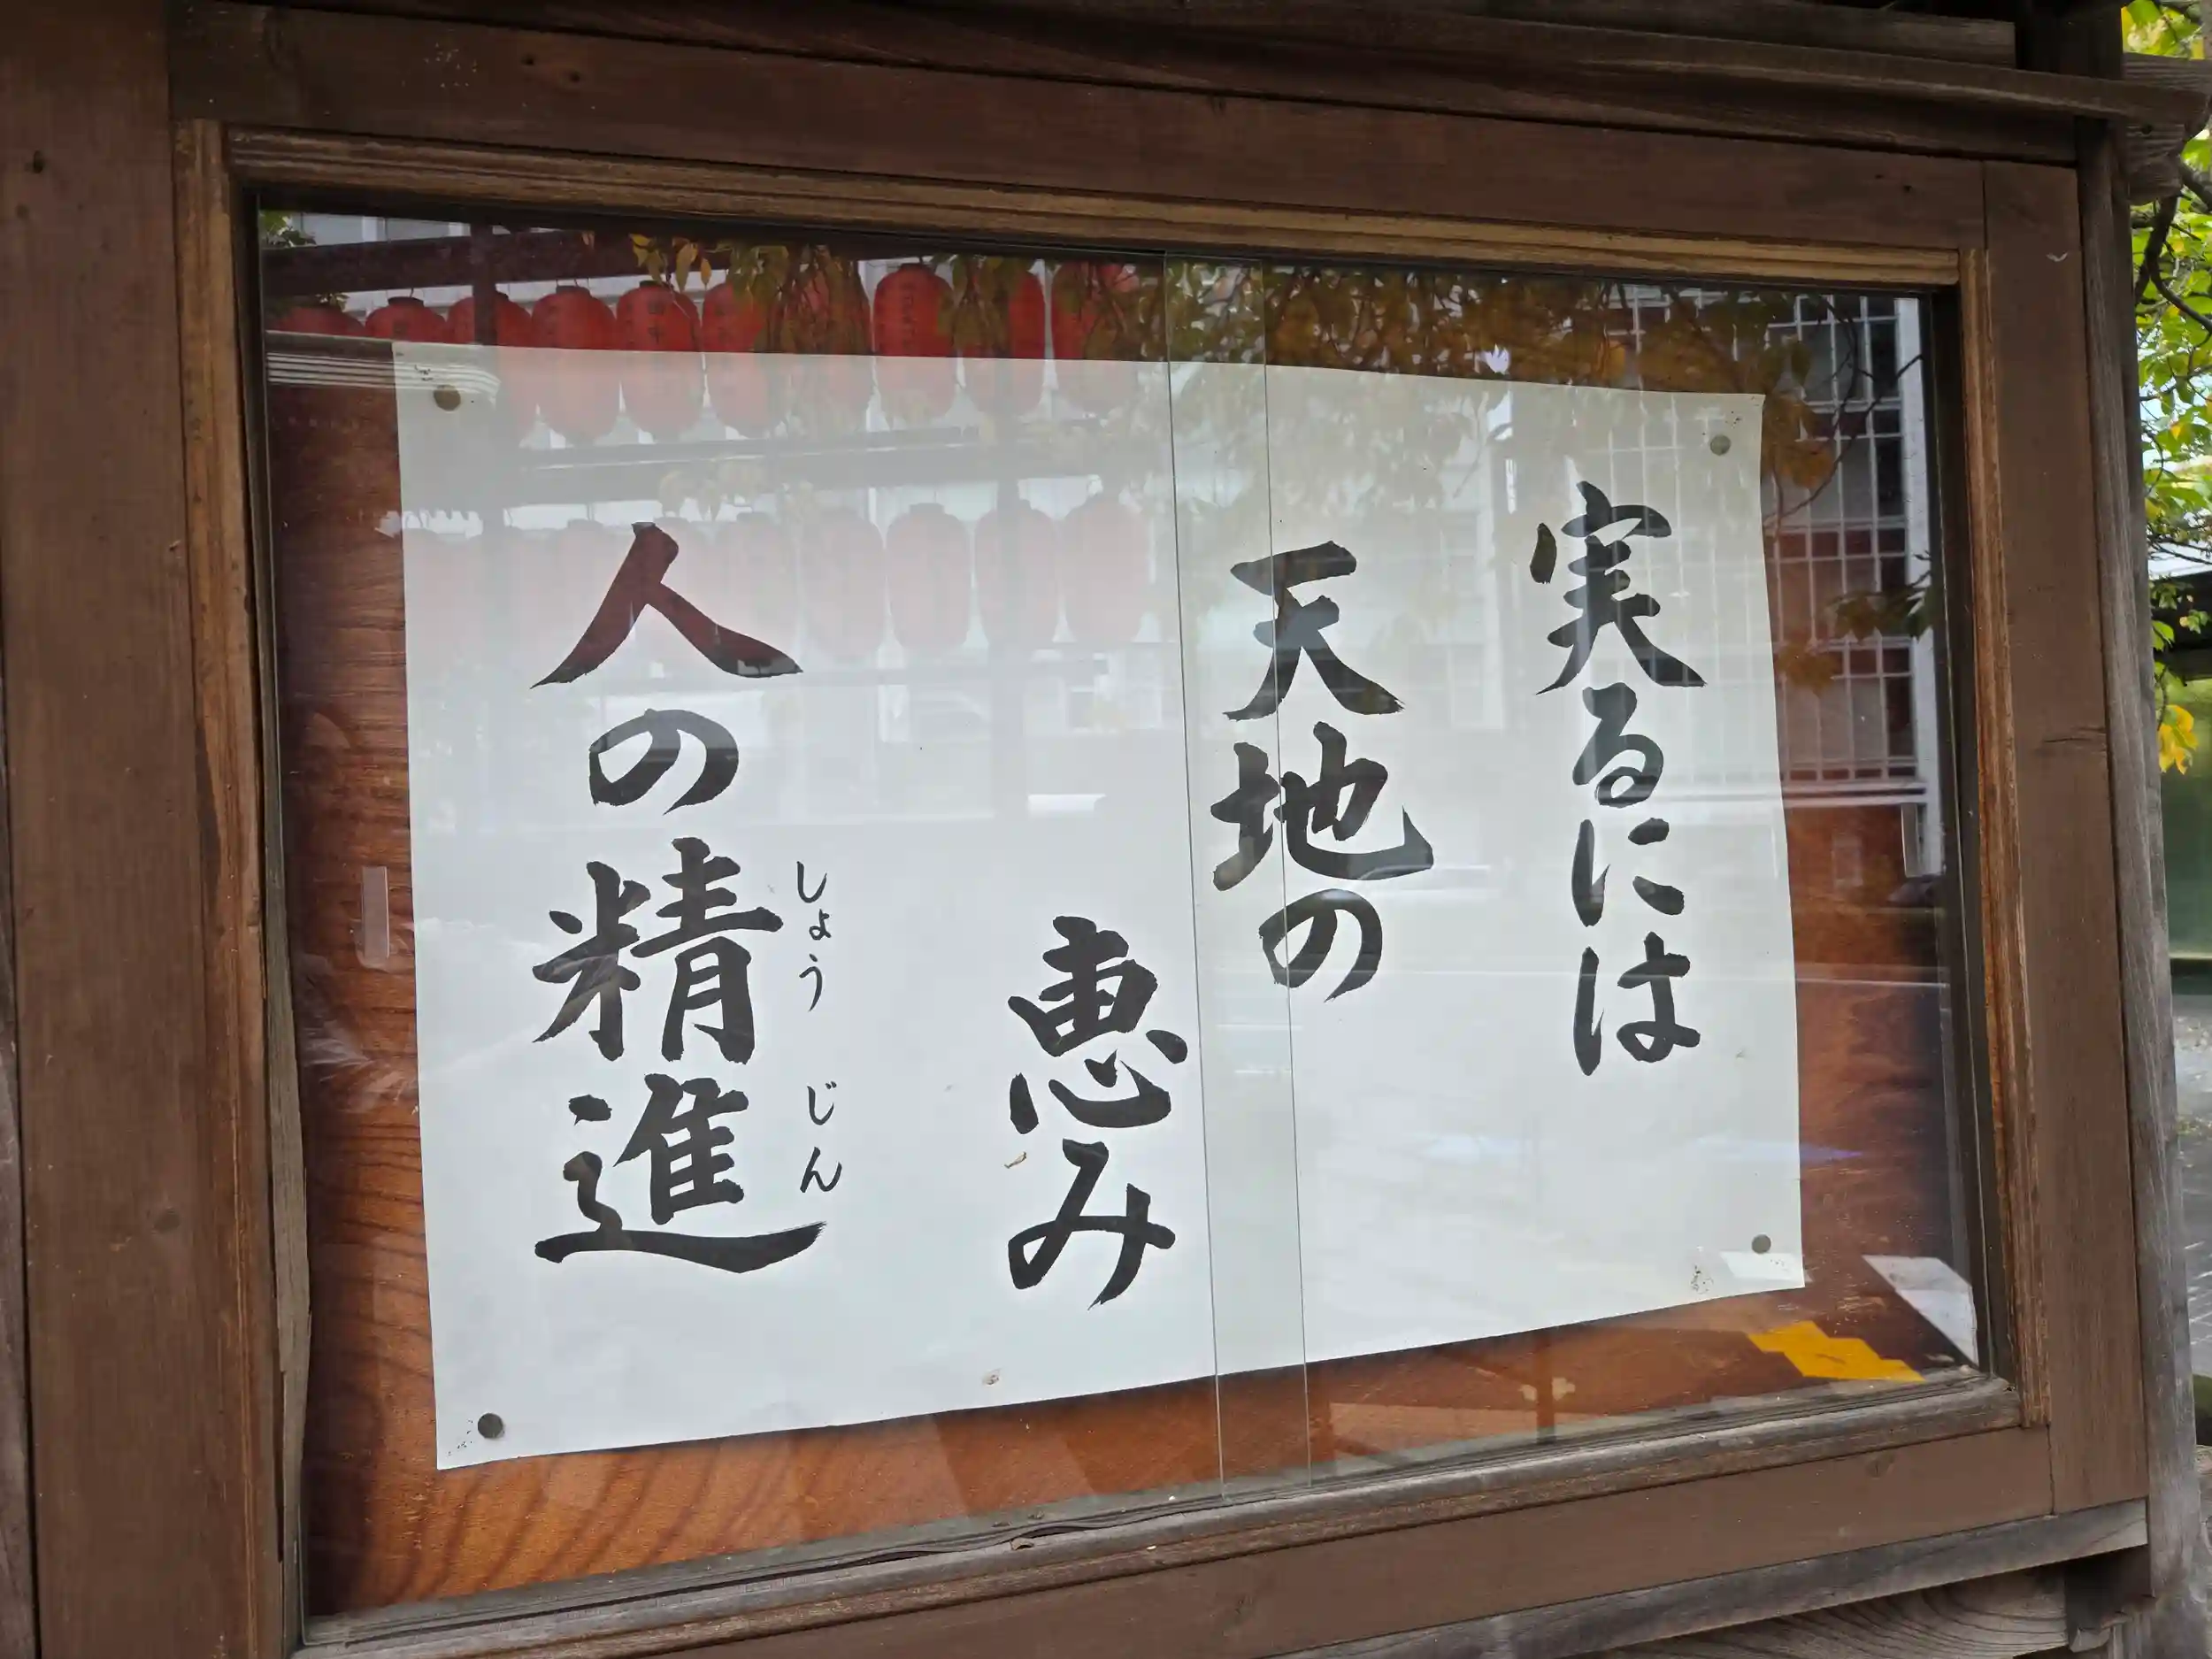 実るには
天地の
恵み
人の精進
しょうじん